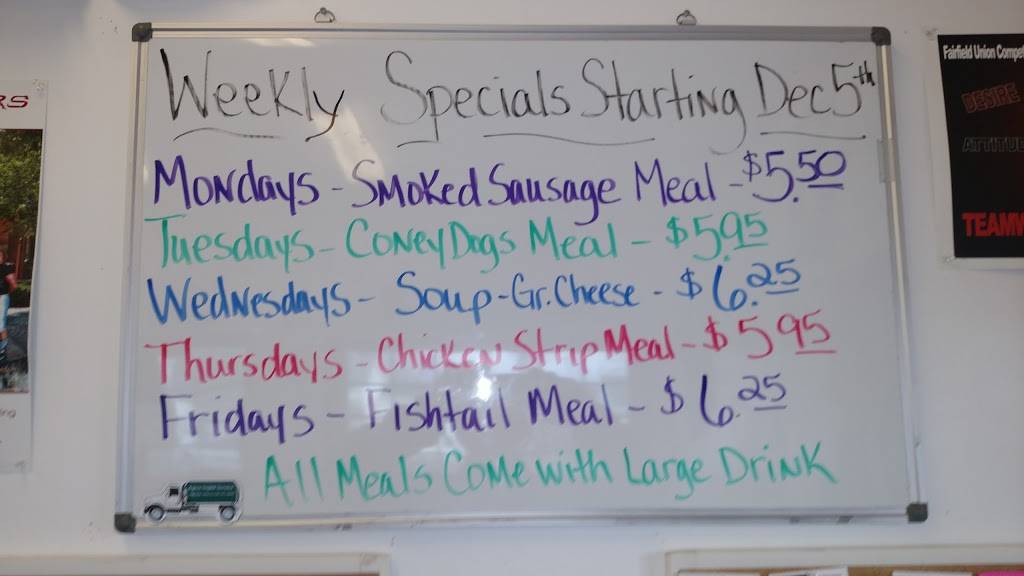 Weekly Specials Starting Dec 5th
Mondays - Smoked Sausage Meal - $5.50
Tuesdays - Coney Dogs Meal - $5.95
Wednesdays - Soup-Gr. Cheese - $6.25
Thursdays - Chicken Strip Meal - $5.95
Fridays - Fishtail Meal - $6.25
All Meals Come with Large Drink
RS
Fairfield Union Compet
DESIRE
ATTITUD
TEAMW